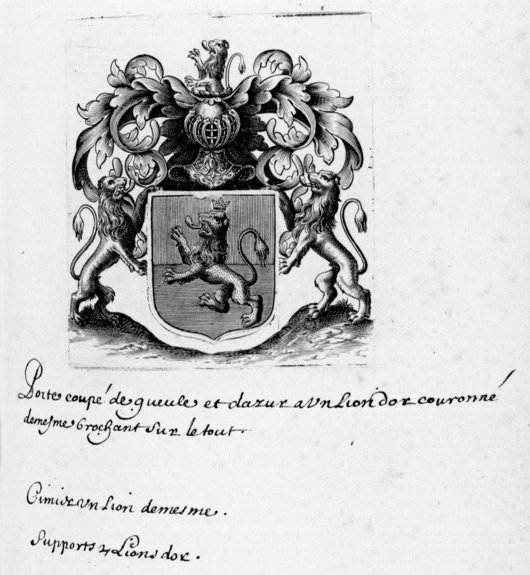 Porte coupé de gueule et dazur a Vn Lion dor couronné
demesme brochant Sur le tout.
Cimier Vn Lion demesme.
Supports 2 Lions dor.